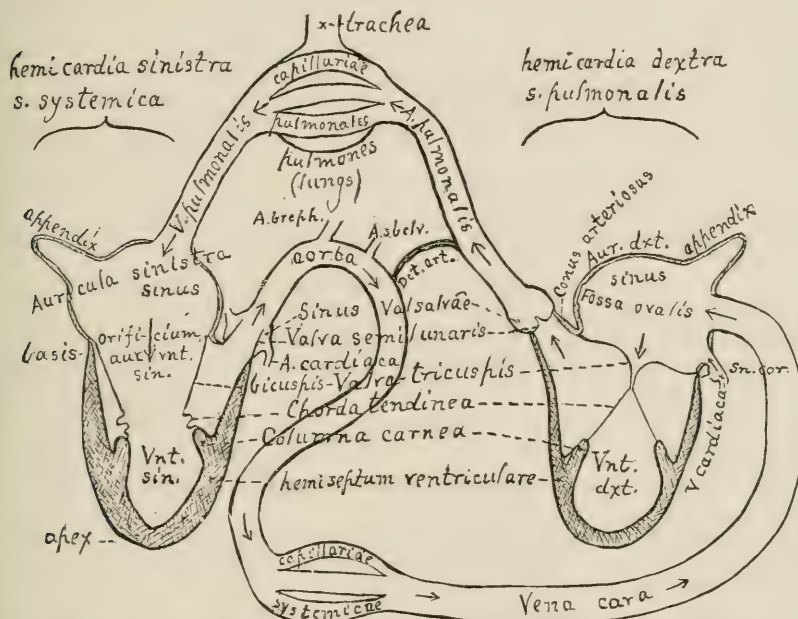 x-trachea
hemicardia sinistra
s. systemica
hemicardia dextra
s. pulmonalis
capillariae
pulmonales
pulmones
(lungs)
V. pulmonalis
A. pulmonalis
appendix
Auricula sinistra
sinus
A.breph.
A.sbclv.
aorta
Dct. art.
Conus arteriosus
Aur. dxt.
appendix
sinus
Fossa ovalis
basis
orificium
aur. vnt.
sin.
Sinus Valsalvae
Valva semilunaris
A. cardiaca
bicuspis-Valva-tricuspis
Chorda tendinea
Columna carnea
hemiseptum ventriculare
Vnt.
sin.
Vnt.
dxt.
Sn. cor.
V cardiaca
apex
capillariae
systemicae
Vena cava